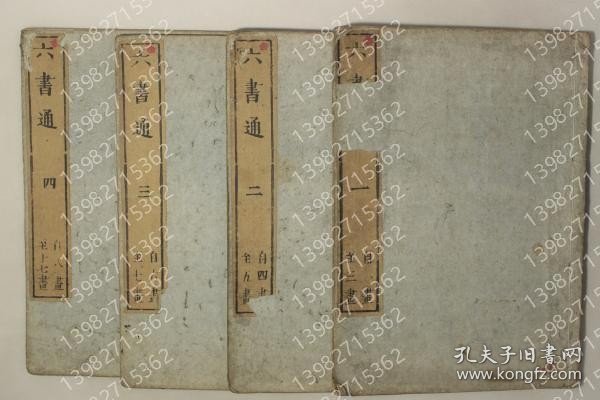 六書通 四
自八畫
至十七畫
六書通 三
自
至七畫
六書通 二
自四畫
至五畫
六書
一
自 畫
至三畫
13982715362
孔夫子旧書网
www.kongfz.com